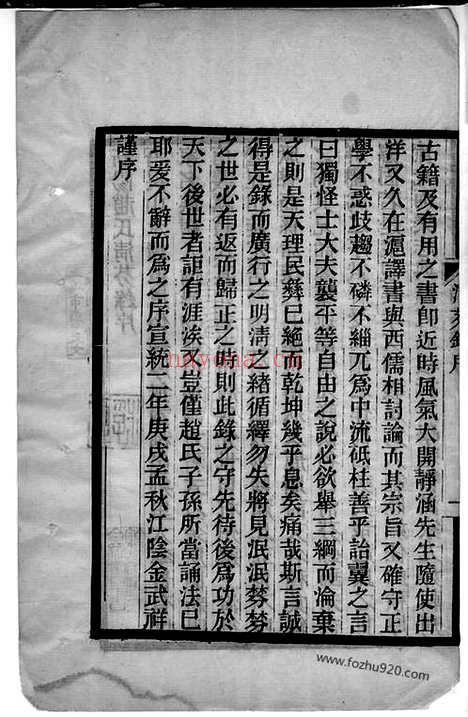 古籍及有用之書卽近時風氣大開靜涵先生隨使出
洋又久在滬譯書與西儒相討論而其宗旨又確守正
學不惑歧趨不磷不緇兀爲中流砥柱善乎詒翼之言
曰獨怪士大夫襲平等自由之說必欲舉三綱而淪棄
之則是天理民彝已絕而乾坤幾乎息矣痛哉斯言誠
得是錄而廣行之明清之緒循繹勿失將見泯泯棼棼
之世必有返而歸正之時則此錄之守先待後爲功於
天下後世者詎有涯涘耶豈僅趙氏子孫所當誦法已
耶爰不辭而爲之序宣統二年庚戌孟秋江陰金武祥
謹序
清芬錄序
一
hxyoha.cn
www.fozhu920.com